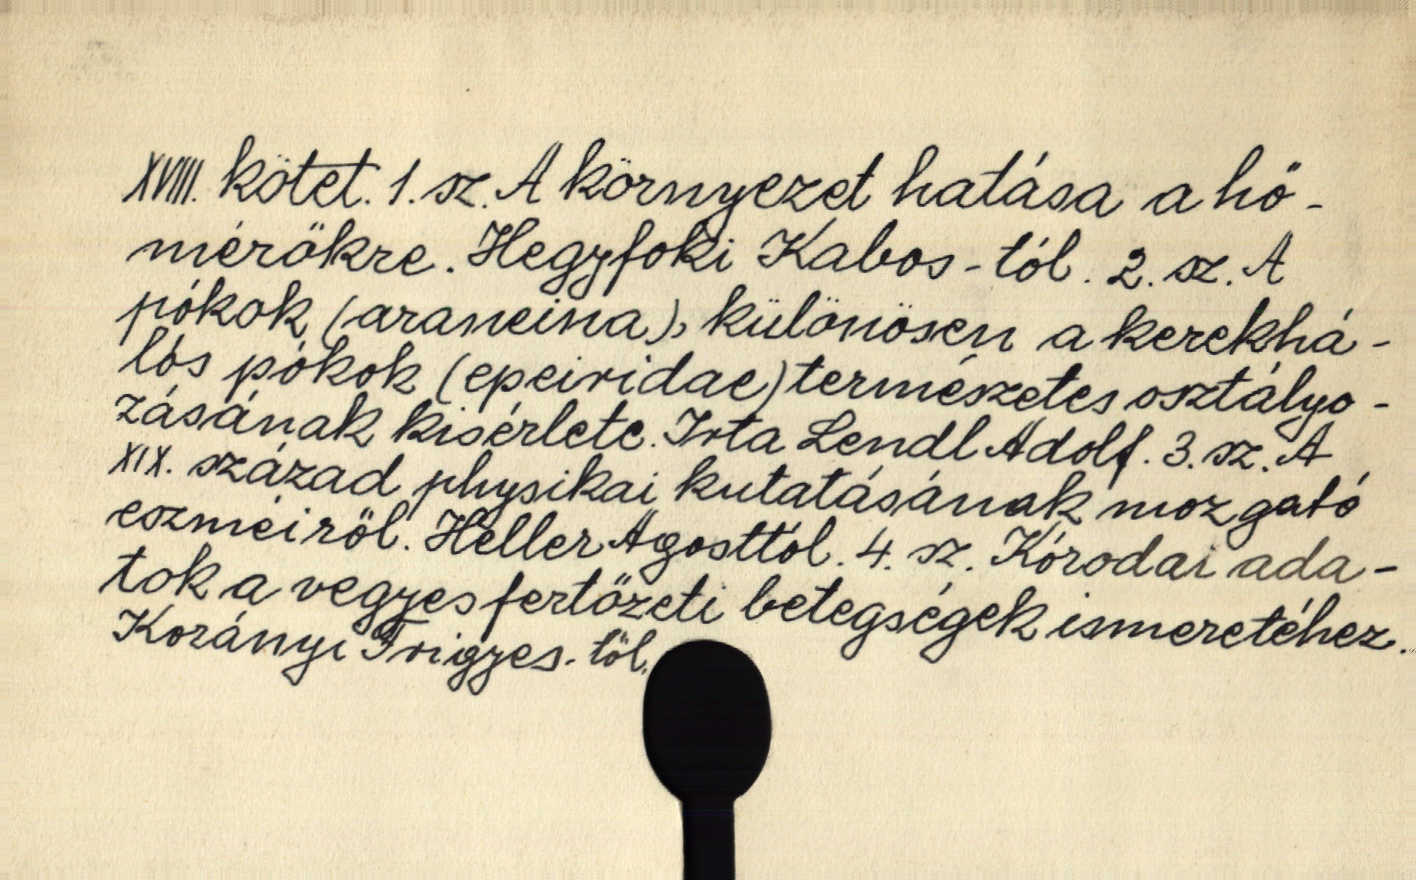 XVIII. kötet. 1. sz. A környezet hatása a hő-
mérőkre. Hegyfoki Kabos-tól. 2. sz. A
pókok (araneina), különösen a kerekhá-
lós pókok (epeiridae) természetes osztályo-
zásának kisérlete. Irta Lendl Adolf. 3. sz. A
XIX. század physikai kutatásának mozgató
eszméiről. Heller Ágosttól. 4. sz. Kórodai ada-
tok a vegyes fertőzeti betegségek ismeretéhez.
Korányi Frigyes-től.